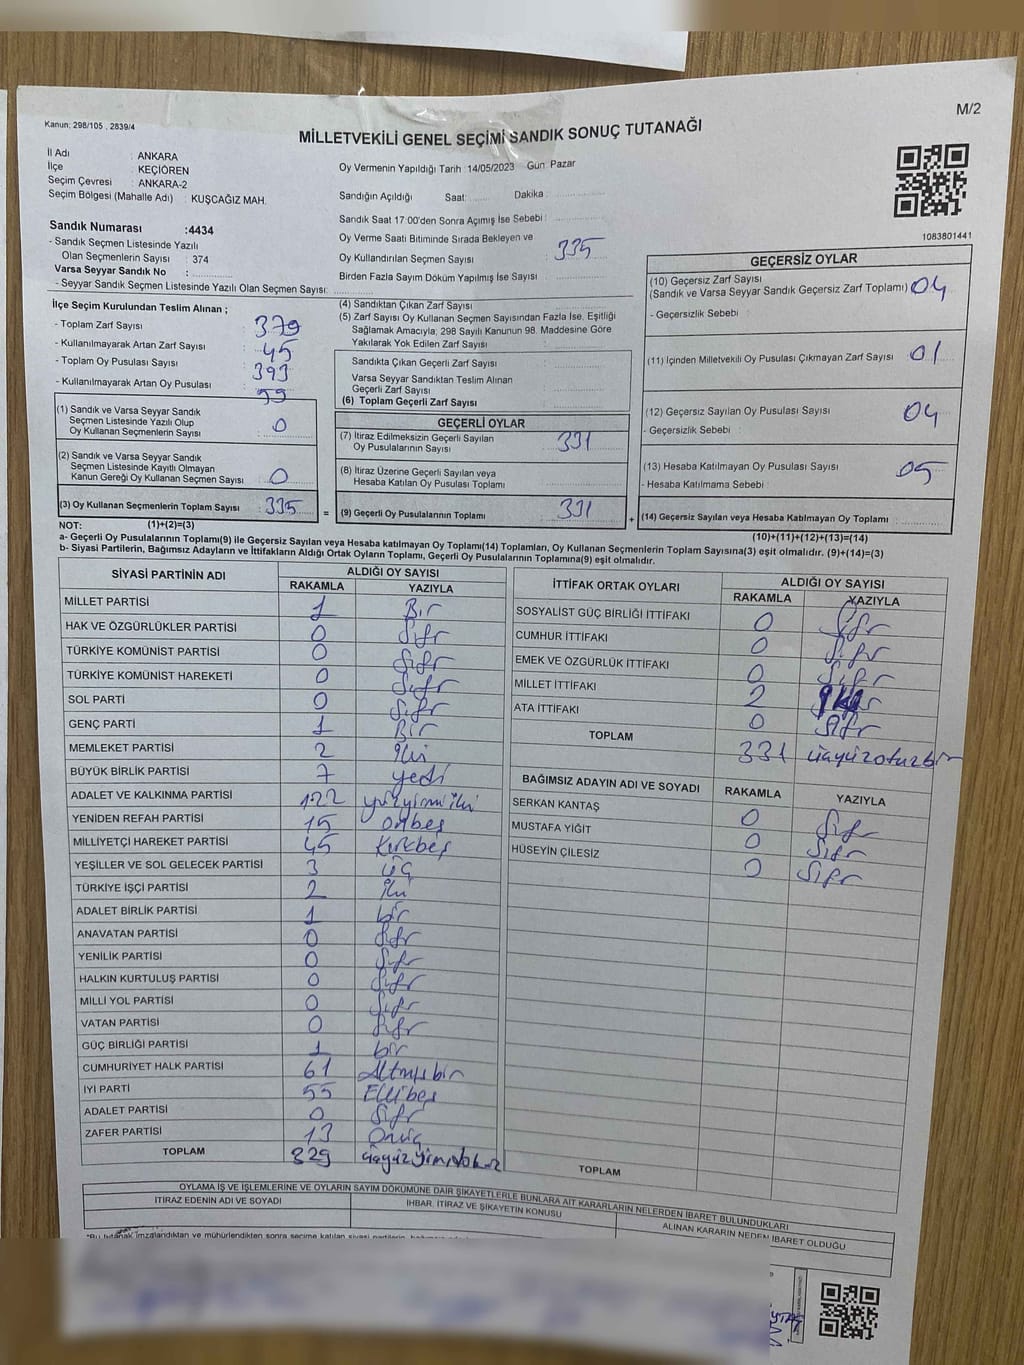 M/2
Kanun: 298/105 , 2839/4
MİLLETVEKİLİ GENEL SEÇİMİ SANDIK SONUÇ TUTANAĞI
İl Adı : ANKARA
İlçe : KEÇİÖREN
Seçim Çevresi : ANKARA-2
Seçim Bölgesi (Mahalle Adı) : KUŞCAĞIZ MAH.
Oy Vermenin Yapıldığı Tarih :14/05/2023 Gün: Pazar
Sandığın Açıldığı Saat: Dakika :
Sandık Saat 17:00'den Sonra Açımış İse Sebebi :
Oy Verme Saati Bitiminde Sırada Bekleyen ve
Oy Kullandırılan Seçmen Sayısı : 335
Birden Fazla Sayım Döküm Yapılmış İse Sayısı :
1083801441
Sandık Numarası :4434
- Sandık Seçmen Listesinde Yazılı
Olan Seçmenlerin Sayısı : 374
Varsa Seyyar Sandık No :
- Seyyar Sandık Seçmen Listesinde Yazılı Olan Seçmen Sayısı:
İlçe Seçim Kurulundan Teslim Alınan ;
- Toplam Zarf Sayısı : 379
- Kullanılmayarak Artan Zarf Sayısı : 45
- Toplam Oy Pusulası Sayısı : 393
- Kullanılmayarak Artan Oy Pusulası : 59
(1) Sandık ve Varsa Seyyar Sandık
Seçmen Listesinde Yazılı Olup
Oy Kullanan Seçmenlerin Sayısı : 0
(2) Sandık ve Varsa Seyyar Sandık
Seçmen Listesinde Kayıtlı Olmayan
Kanun Gereği Oy Kullanan Seçmen Sayısı : 0
(3) Oy Kullanan Seçmenlerin Toplam Sayısı : 335
(4) Sandıktan Çıkan Zarf Sayısı :
(5) Zarf Sayısı Oy Kullanan Seçmen Sayısından Fazla İse, Eşitliği
Sağlamak Amacıyla; 298 Sayılı Kanunun 98. Maddesine Göre
Yakılarak Yok Edilen Zarf Sayısı :
Sandıkta Çıkan Geçerli Zarf Sayısı :
Varsa Seyyar Sandıktan Teslim Alınan
Geçerli Zarf Sayısı :
(6) Toplam Geçerli Zarf Sayısı :
GEÇERLİ OYLAR
(7) İtiraz Edilmeksizin Geçerli Sayılan
Oy Pusulalarının Sayısı : 331
(8) İtiraz Üzerine Geçerli Sayılan veya
Hesaba Katılan Oy Pusulası Toplamı :
= (9) Geçerli Oy Pusulalarının Toplamı : 331
GEÇERSİZ OYLAR
(10) Geçersiz Zarf Sayısı
(Sandık ve Varsa Seyyar Sandık Geçersiz Zarf Toplamı) : 04
- Geçersizlik Sebebi :
(11) İçinden Milletvekili Oy Pusulası Çıkmayan Zarf Sayısı : 01
(12) Geçersiz Sayılan Oy Pusulası Sayısı : 04
- Geçersizlik Sebebi :
(13) Hesaba Katılmayan Oy Pusulası Sayısı : 05
- Hesaba Katılmama Sebebi :
+ (14) Geçersiz Sayılan veya Hesaba Katılmayan Oy Toplamı :
NOT: (1)+(2)=(3)
(10)+(11)+(12)+(13)=(14)
a- Geçerli Oy Pusulalarının Toplamı(9) ile Geçersiz Sayılan veya Hesaba katılmayan Oy Toplamı(14) Toplamları, Oy Kullanan Seçmenlerin Toplam Sayısına(3) eşit olmalıdır. (9)+(14)=(3)
b- Siyasi Partilerin, Bağımsız Adayların ve İttifakların Aldığı Ortak Oyların Toplamı, Geçerli Oy Pusulalarının Toplamına(9) eşit olmalıdır.
SİYASİ PARTİNİN ADI ALDIĞI OY SAYISI
RAKAMLA YAZIYLA
MİLLET PARTİSİ 1 Bir
HAK VE ÖZGÜRLÜKLER PARTİSİ 0 Sıfır
TÜRKİYE KOMÜNİST PARTİSİ 0 Sıfır
TÜRKİYE KOMÜNİST HAREKETİ 0 Sıfır
SOL PARTİ 0 Sıfır
GENÇ PARTİ 1 Bir
MEMLEKET PARTİSİ 2 İki
BÜYÜK BİRLİK PARTİSİ 7 yedi
ADALET VE KALKINMA PARTİSİ 122 yüzyirmiiki
YENİDEN REFAH PARTİSİ 15 onbeş
MİLLİYETÇİ HAREKET PARTİSİ 45 Kırkbeş
YEŞİLLER VE SOL GELECEK PARTİSİ 3 üç
TÜRKİYE İŞÇİ PARTİSİ 2 iki
ADALET BİRLİK PARTİSİ 1 bir
ANAVATAN PARTİSİ 0 Sıfır
YENİLİK PARTİSİ 0 Sıfır
HALKIN KURTULUŞ PARTİSİ 0 Sıfır
MİLLİ YOL PARTİSİ 0 Sıfır
VATAN PARTİSİ 0 Sıfır
GÜÇ BİRLİĞİ PARTİSİ 1 bir
CUMHURİYET HALK PARTİSİ 61 Altmışbir
İYİ PARTİ 55 Ellibeş
ADALET PARTİSİ 0 Sıfır
ZAFER PARTİSİ 13 Onüç
TOPLAM 329 üçyüzyirmidokuz
İTTİFAK ORTAK OYLARI ALDIĞI OY SAYISI
RAKAMLA YAZIYLA
SOSYALİST GÜÇ BİRLİĞİ İTTİFAKI 0 Sıfır
CUMHUR İTTİFAKI 0 Sıfır
EMEK VE ÖZGÜRLÜK İTTİFAKI 0 Sıfır
MİLLET İTTİFAKI 2
ATA İTTİFAKI 0 Sıfır
TOPLAM 331 üçyüzotuzbir
BAĞIMSIZ ADAYIN ADI VE SOYADI RAKAMLA YAZIYLA
SERKAN KANTAŞ 0 Sıfır
MUSTAFA YİĞİT 0 Sıfır
HÜSEYİN ÇİLESİZ 0 Sıfır
TOPLAM
OYLAMA İŞ VE İŞLEMLERİNE VE OYLARIN SAYIM DÖKÜMÜNE DAİR ŞİKAYETLERLE BUNLARA AİT KARARLARIN NELERDEN İBARET BULUNDUKLARI
İTİRAZ EDENİN ADI VE SOYADI İHBAR, İTİRAZ VE ŞİKAYETİN KONUSU ALINAN KARARIN NEDEN İBARET OLDUĞU
*Bu tutanak imzalandıktan ve mühürlendikten sonra seçime katılan siyasi partilerin,